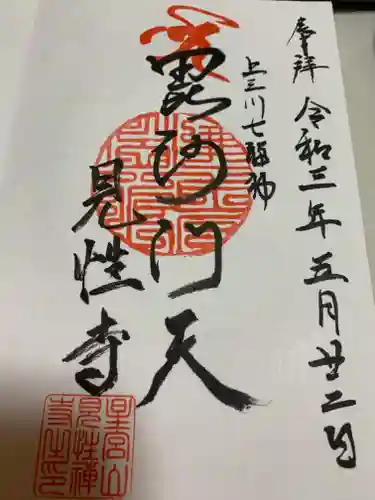 奉拝
令和三年五月廿二日
上三川七福神
毘沙門天
見性寺
星宮山
見性禅
寺之印